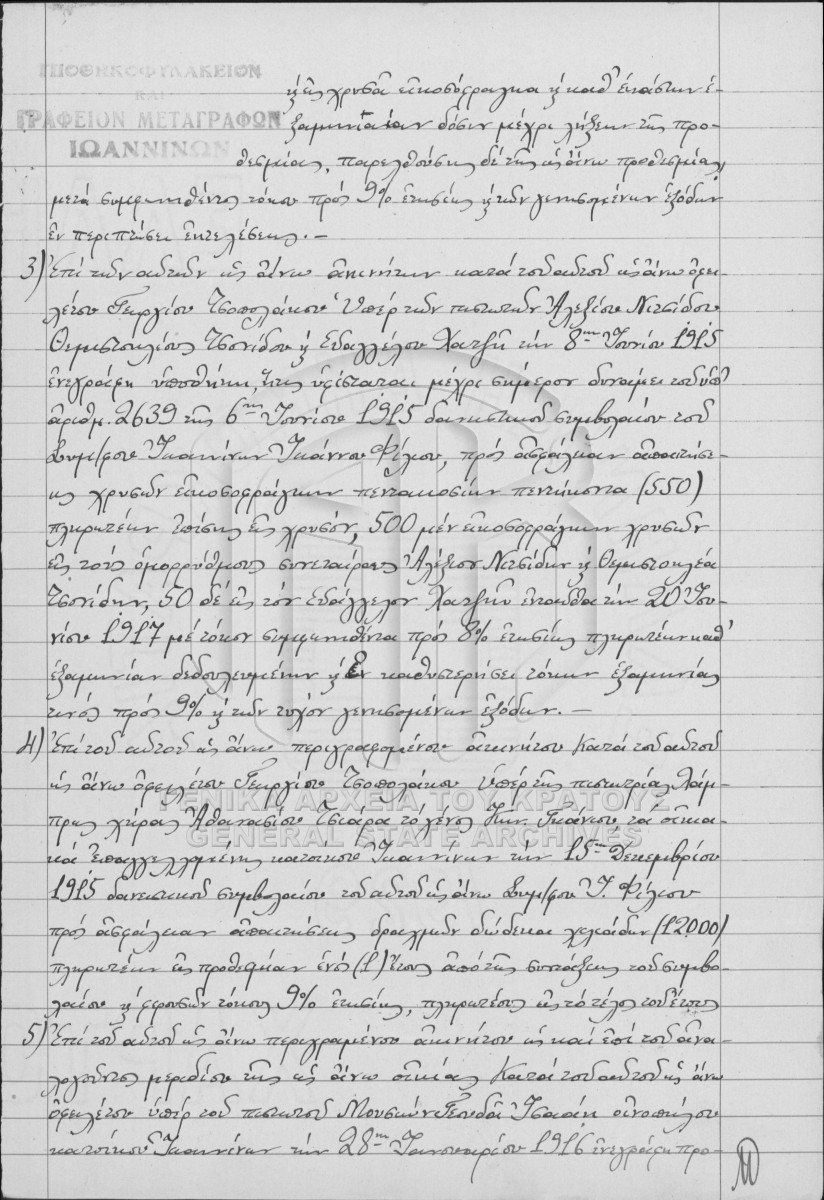 ΥΠΟΘΗΚΟΦΥΛΑΚΕΙΟΝ
ΚΑΙ
ΓΡΑΦΕΙΟΝ ΜΕΤΑΓΡΑΦΩΝ
ΙΩΑΝΝΙΝΩΝ
εἰς χρυσᾶ εἰκοσόφραγκα καθ' ἑκάστην ἑ-
ξαμηνιαίαν δόσιν μέχρι λήξεως τῆς προ-
θεσμίας, παρελθούσης δὲ τῆς ὡς ἄνω προθεσμίας,
μετὰ συμφωνηθέντος τόκου πρὸς 9% ἐτησίως κ τῶν γενησομένων ἐξόδων
ἐν περιπτώσει ἐκτελέσεως. —
3) Ἐπὶ τῶν αὐτῶν ὡς ἄνω ἀκινήτων κατὰ τοῦ αὐτοῦ ὡς ἄνω ὀφει-
λέτου Γεωργίου Τσοπολάκου Ὑπὲρ τῶν πιστωτῶν Ἀλεξίου Νιτσίδου
Θεμιστοκλέους Τσονίδου κ Εὐαγγέλου Χατζῆ τὴν 8ην Ἰουνίου 1915
ἐνεγράφη ὑποθήκη, ἥτις ὑφίσταται μέχρι σήμερον δυνάμει τοῦ ὑπ'
ἀριθμ. 2639 τῆς 6ης Ἰουνίου 1915 δανειστικοῦ συμβολαίου τοῦ
Συμ/φου Ἰωαννίνων Ἰωάννου Φίλιου, πρὸς ἀσφάλειαν ἀπαιτήσε-
ως χρυσῶν εἰκοσοφράγκων πεντακοσίων πεντήκοντα (550)
πληρωτέων ἐπίσης εἰς χρυσόν, 500 μὲν εἰκοσοφράγκων χρυσῶν
εἰς τοὺς ὁμορρύθμους συνεταίρους Ἀλέξιον Νιτσίδην κ Θεμιστοκλέα
Τσονίδην, 50 δὲ εἰς τὸν Εὐάγγελον Χατζῆν ἐνταῦθα τὴν 20 Ἰου-
νίου 1917 μὲ τόκον συμφωνηθέντα πρὸς 8% ἐτησίως πληρωτέων καθ'
ἑξαμηνίαν δεδουλευμένην κ ἐν καθυστερήσει τόκων ἑξαμηνίας
τινός πρὸς 9% κ τῶν τυχόν γενησομένων ἐξόδων. —
4) Ἐπὶ τοῦ αὐτοῦ ὡς ἄνω περιγραφομένου ἀκινήτου κατὰ τοῦ αὐτοῦ
ὡς ἄνω ὀφειλέτου Γεωργίου Τσοπολάκου ὑπὲρ τῆς πιστωτρίας Λάμ-
πρως χήρας Ἀθανασίου Τσιάρα τὸ γένος Κων. Γκάνιου τὰ οἰκια-
κὰ ἐπαγγελλομένης κατοίκου Ἰωαννίνων τὴν 15ην Δεκεμβρίου
1915 δανειστικοῦ συμβολαίου τοῦ αὐτοῦ ὡς ἄνω Συμ/φου Ἰ. Φίλιου
πρὸς ἀσφάλειαν ἀπαιτήσεως δραχμῶν δώδεκα χιλιάδων (12000)
πληρωτέων εἰς προθεσμίαν ἑνὸς (1) ἔτους ἀπὸ τῆς συντάξεως τοῦ συμβο-
λαίου κ φερουσῶν τόκους 9% ἐτησίως, πληρωτέους εἰς τὸ τέλος τοῦ ἔτους
5) Ἐπὶ τοῦ αὐτοῦ ὡς ἄνω περιγραμένου ἀκινήτου ὡς καὶ ἐπὶ τοῦ ἀνα-
λογοῦντος μεριδίου τῆς ὡς ἄνω οἰκίας κατὰ τοῦ αὐτοῦ ὡς ἄνω
ὀφειλέτου ὑπὲρ τοῦ πιστωτοῦ Μουσῶν Γεουδᾶ Ἰσαὰκ οἰνοπώλου
κατοίκου Ἰωαννίνων τὴν 28ην Ἰανουαρίου 1916 ἐνεγράφη προ-
ΓΕΝΙΚΑ ΑΡΧΕΙΑ ΤΟΥ ΚΡΑΤΟΥΣ
GENERAL STATE ARCHIVES